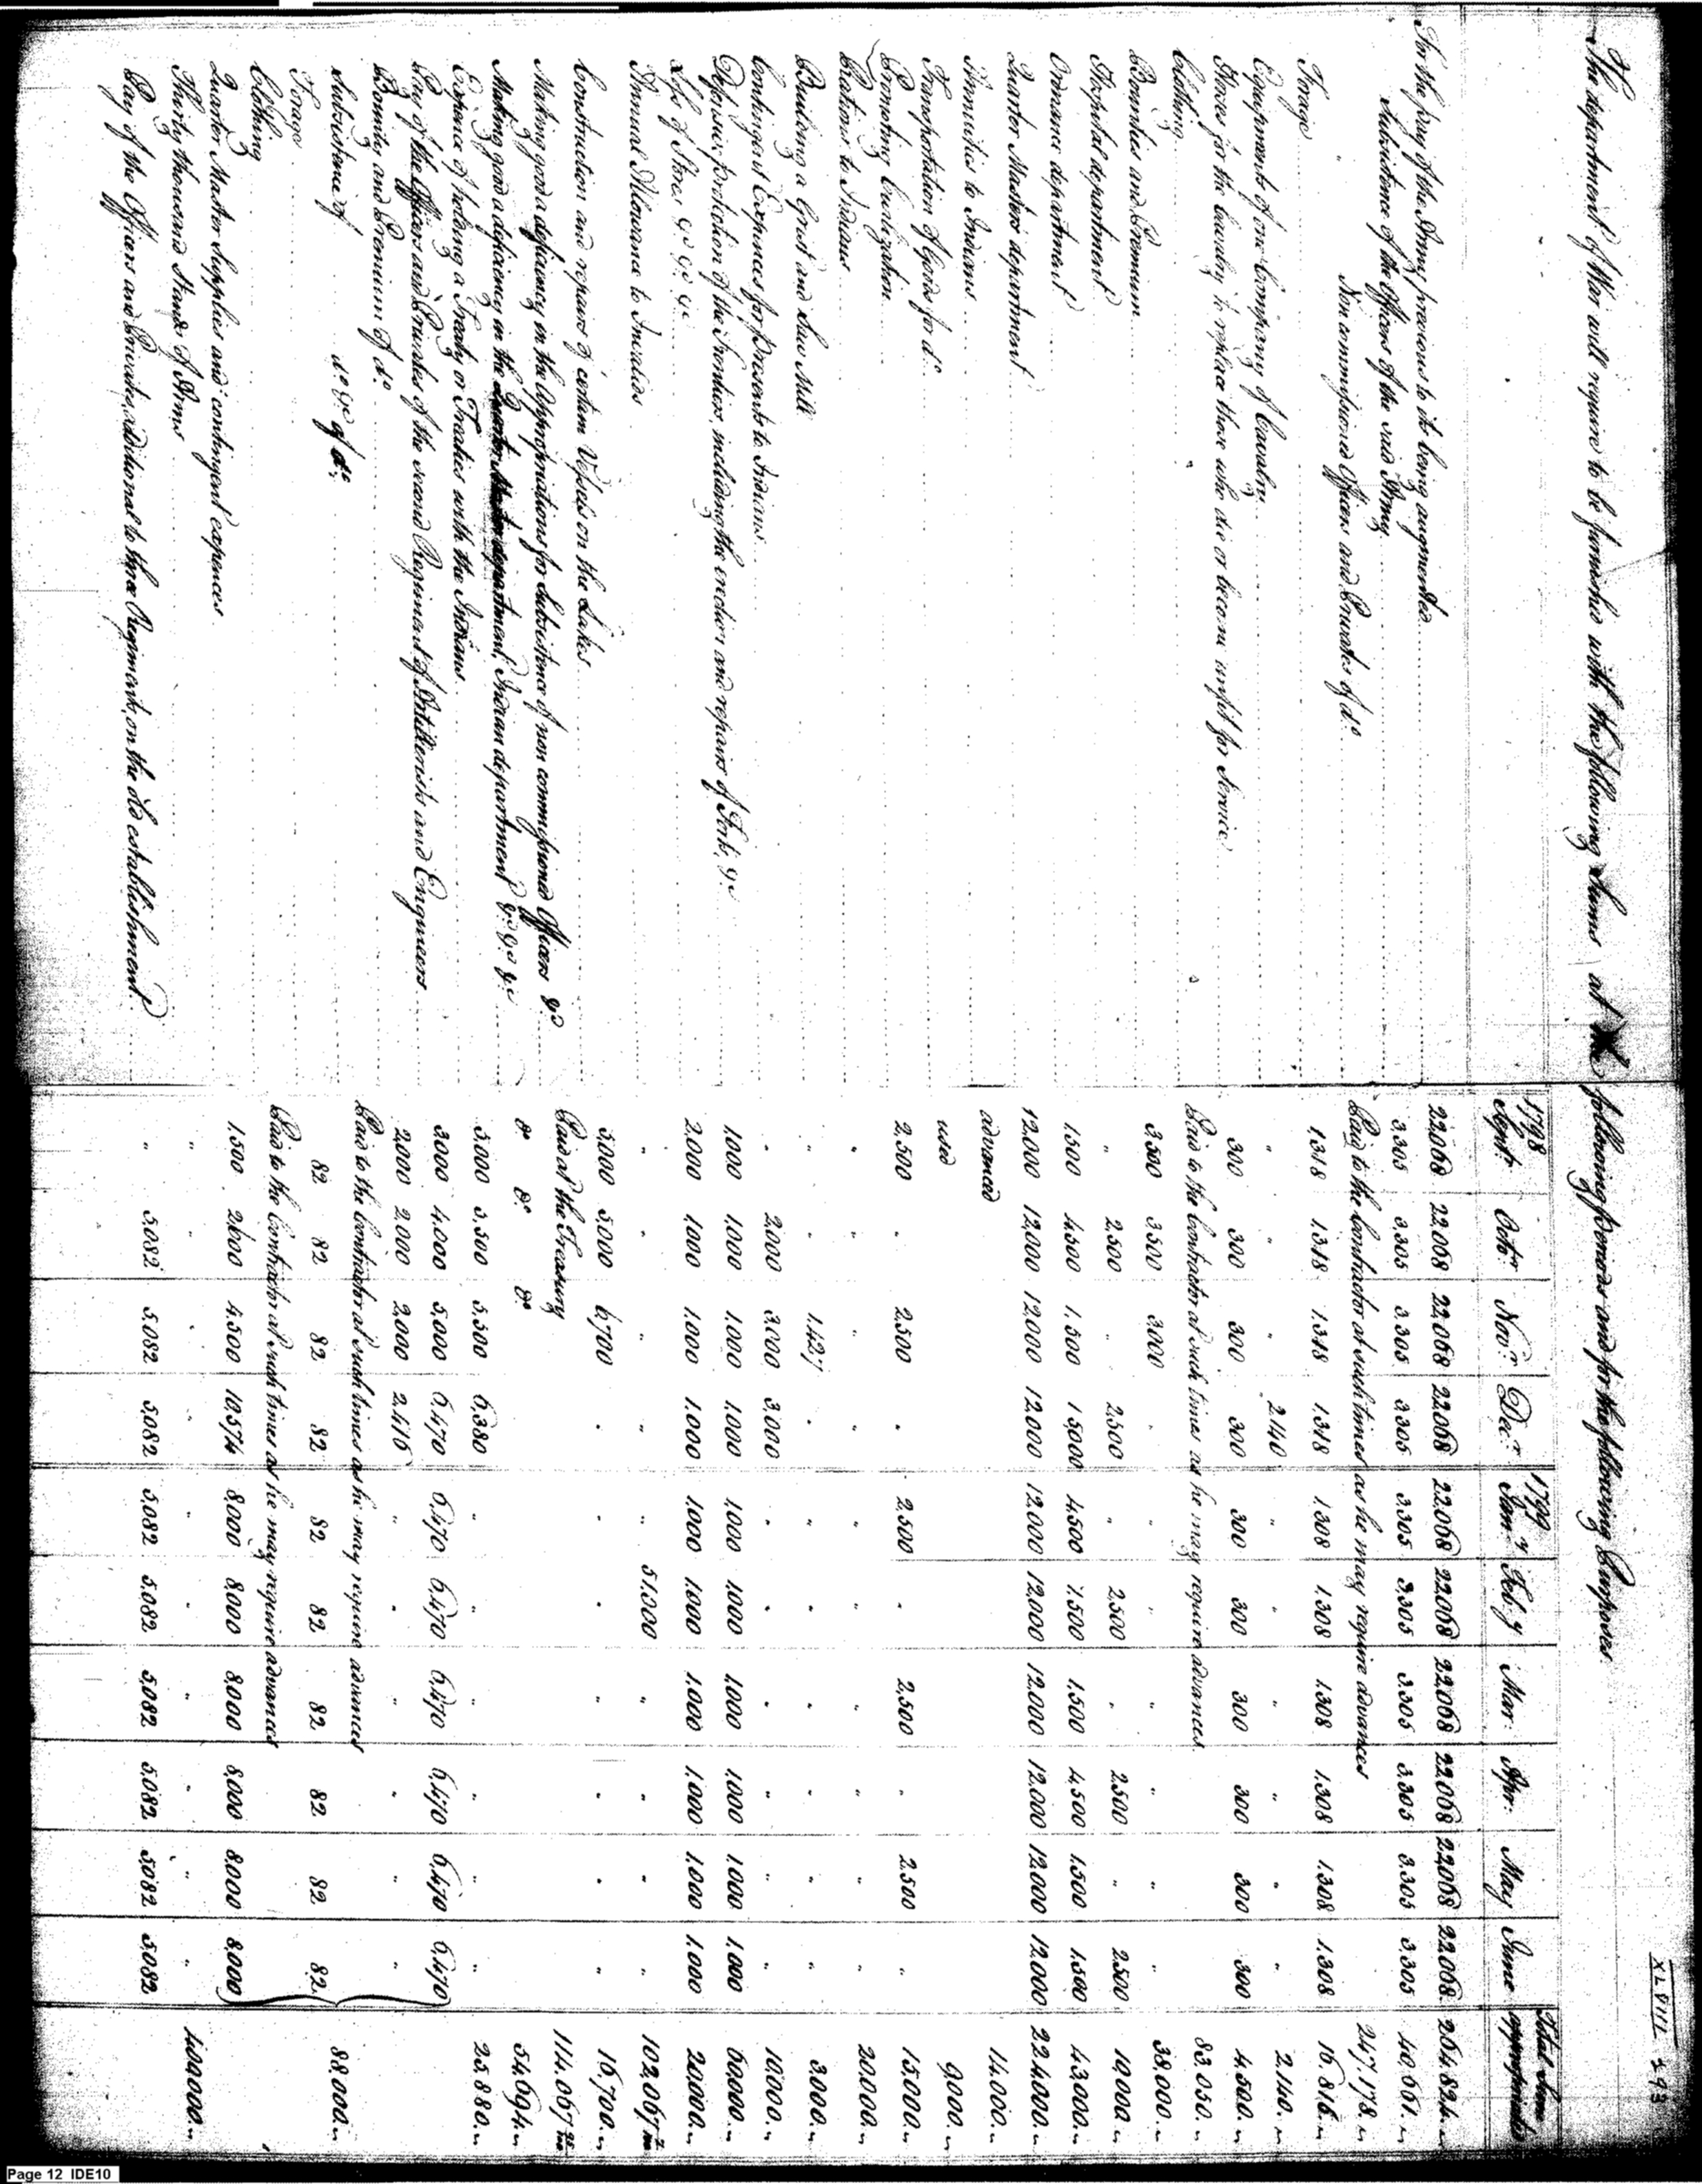 XLVIII 293
The department of War will require to be furnished with the following Sums at the following periods and for the following Purposes.
1798 Sept. Octo. Nov. Dec. 1799 Jan.y Feb.y Mar. Apr. May June Total Sum appropriated
For the pay of the Army previous to its being augmented 22.068 22.068 22.068 22.068 22.068 22.068 22.068 22.068 22.068 22.068 264.824.
Subsistence of the officers of the said Army 3.305 3.305 3.305 3.305 3.305 3.305 3.305 3.305 3.305 3.305 40.661.
Non commissioned Officers and Privates of do. Paid to the Contractor at such times as he may require advances 247.178.
Forage 1.318 1.318 1.318 1.318 1.308 1.308 1.308 1.308 1.308 1.308 16.816.
Equipments of one Company of Cavalry " " " 2.140 " " " " " " 2.140.
Horses for the Cavalry to replace those who die or become unfit for Service 300 300 300 300 300 300 300 300 300 300 4.500.
Clothing Paid to the Contractor at such times as he may require advances. 83.050.
Bounties and Premium 3.500 3.500 3.000 " " " " " " " 38.000.
Hospital department " 2.500 " 2.500 " 2.500 " 2.500 " 2.500 10.000
Ordnance department 1.500 4.500 1.500 15.000 4.500 7.500 1.500 4.500 1.500 1.500 43.000.
Quarter Masters department 12.000 12.000 12.000 12.000 12.000 12.000 12.000 12.000 12.000 12.000 224.000.
Annuities to Indians advanced 14.000.
Transportation of Goods for do. used 9.000.
Promoting Civilization 2.500 " 2.500 " 2.500 " 2.500 " 2.500 " 15.000.
Rations to Indians " " " " " " " " " " 20.000.
Building a Grist and Saw Mill " " 1.427 " " " " " " " 3.000.
Contingent Expences for Presents to Indians " 2.000 3.000 3.000 " " " " " " 10.000.
Defensive protection of the Frontiers, including the erection and repairs of Forts, &c 1.000 1.000 1.000 1.000 1.000 1.000 1.000 1.000 1.000 1.000 60.000.
Loss of Stores &c &c &c 2.000 1.000 1.000 1.000 1.000 1.000 1.000 1.000 1.000 1.000 20.000.
Annual Allowance to Invalids " " " " " 51.000 " " " " 102.067
Construction and repairs of certain Vessels on the Lakes 5.000 5.000 6.700 " " " " " " " 16.700.
Making good a deficiency in the Appropriations for Subsistence of non commissioned Officers &c Paid at the Treasury 114.067
Making good a deficiency in the Indian department &c &c &c do do do 54.694.
Expence of holding a Treaty or Treaties with the Indians 5.000 5.500 5.500 6.380 " " " " " " 25.880.
Pay of the Officers and Privates of the second Regiment of Artillerists and Engineers 3.000 4.000 5.000 6.470 6.470 6.470 6.470 6.470 6.470 6.470
Bounty and Premium of do. 2.000 2.000 2.000 2.416 " " " " " "
Subsistence of do &c of do. Paid to the Contractor at such times as he may require advances
Forage 82 82 82 82 82 82 82 82 82 82 88.000.
Clothing Paid to the Contractor at such times as he may require advances
Quarter Master Supplies and contingent expences 1.500 2.600 4.500 10.574 8.000 8.000 8.000 8.000 8.000 8.000
Thirty thousand Stands of Arms " " " " " " " " " " 400.000.
Pay of the Officers and Privates additional to three Regiments, on the old establishment. " 5.082 5.082 5.082 5.082 5.082 5.082 5.082 5.082 5.082
Page 12 IDE10